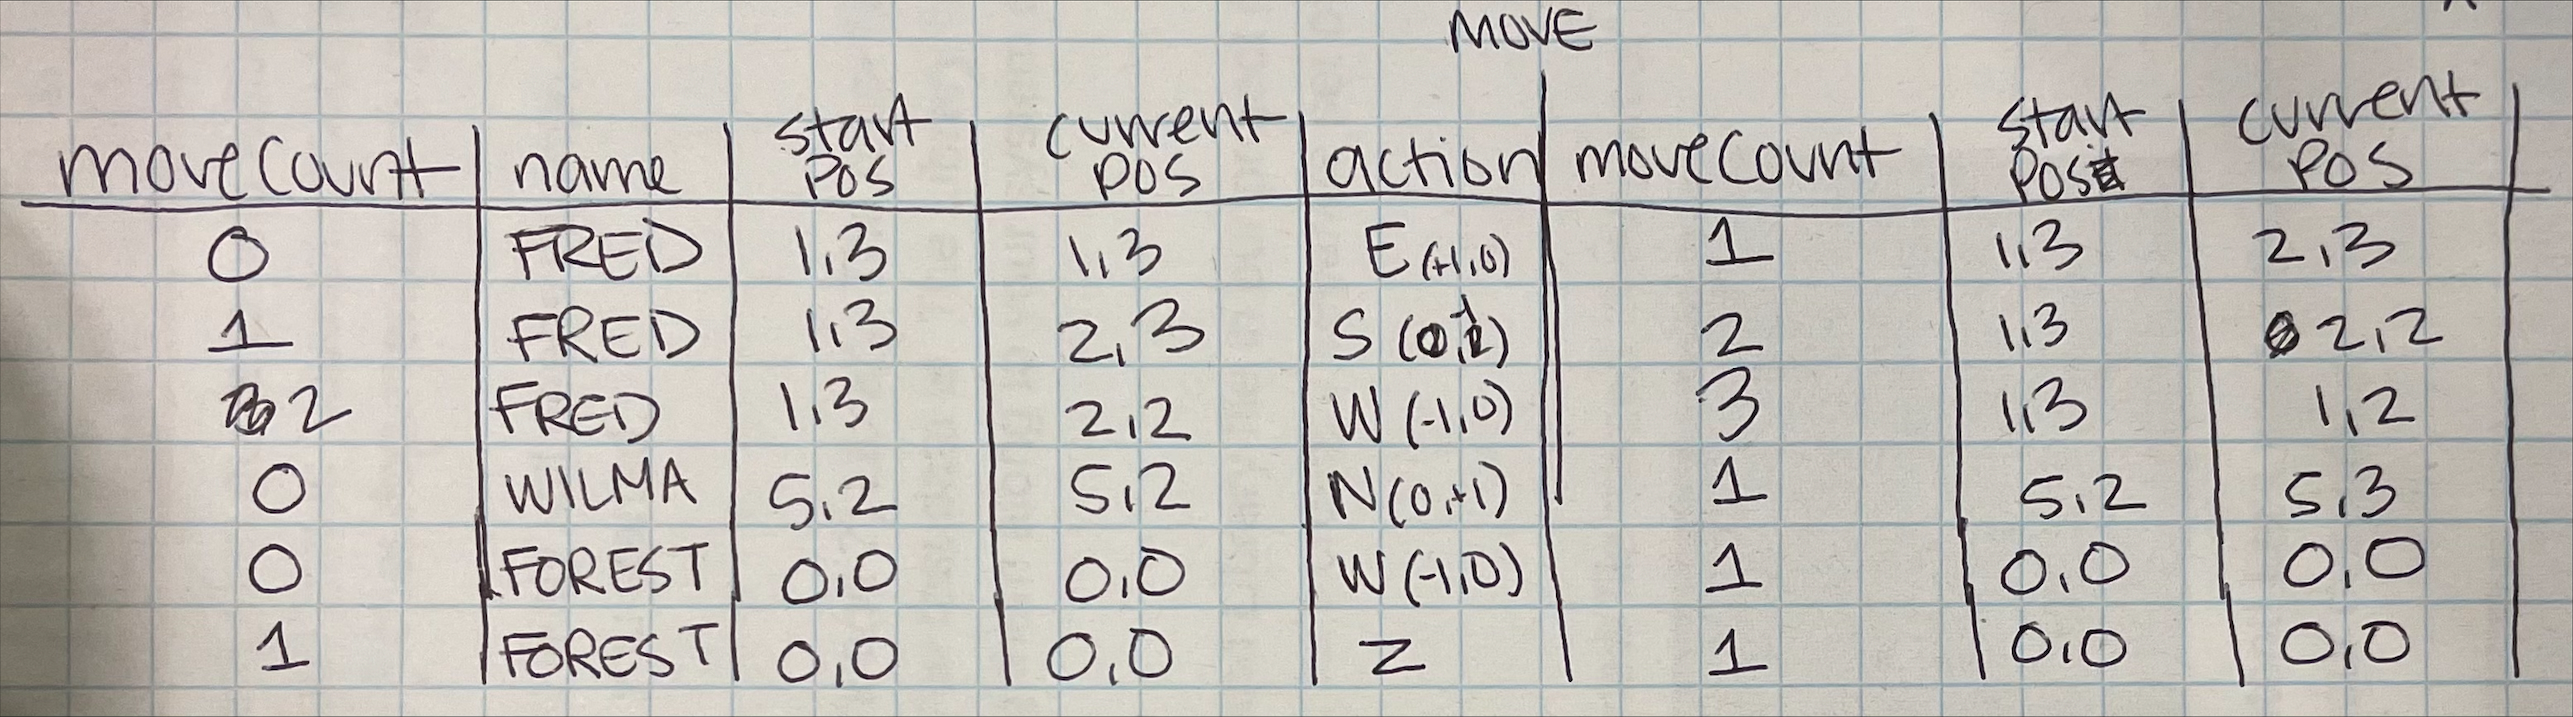 MOVE
moveCount name start pos current pos action moveCount start pos current pos
0 FRED 1,3 1,3 E (+1,0) 1 1,3 2,3
1 FRED 1,3 2,3 S (0,-1) 2 1,3 2,2
2 FRED 1,3 2,2 W (-1,0) 3 1,3 1,2
0 WILMA 5,2 5,2 N (0,+1) 1 5,2 5,3
0 FOREST 0,0 0,0 W (-1,0) 1 0,0 0,0
1 FOREST 0,0 0,0 Z 1 0,0 0,0